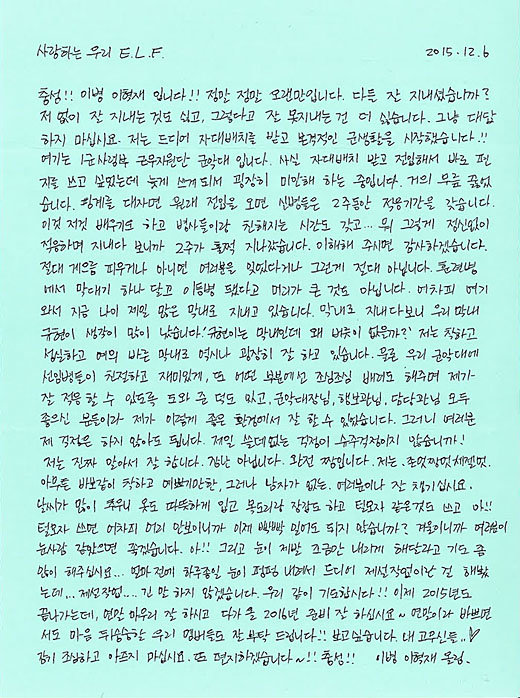 사랑하는 우리 E.L.F. 2015.12.6
충성!! 이병 이혁재 입니다!! 정말 정말 오랜만입니다. 다들 잘 지내셨습니까?
저 없이 잘 지내는 것도 싫고, 그렇다고 잘 못지내는 건 더 싫습니다. 그냥 대답
하지 마십시요. 저는 드디어 자대배치를 받고 본격적인 군생활을 시작했습니다!!
여기는 1군사령부 근무지원단 군악대 입니다. 사실 자대배치 받고 전입해서 바로 편
지를 쓰고 싶었는데 늦게 쓰게 되서 굉장히 미안해 하는 중입니다. 거의 무릎 꿇었
습니다. 핑계를 대자면 원래 전입을 오면 신병들은 2주동안 적응기간을 갖습니다.
이것 저것 배우기도 하고 병사들이랑 친해지는 시간도 갖고... 뭐 그렇게 정신없이
적응하며 지내다 보니까 2주가 훌쩍 지나갔습니다. 이해해 주시면 감사하겠습니다.
절대 게으름 피우거나 아니면 여러분을 잊었다거나 그런게 절대 아닙니다. 훈련병
에서 막대기 하나 달고 이등병 됐다고 머리가 큰 것도 아닙니다. 어차피 여기
와서 지금 나이 제일 많은 막내로 지내고 있습니다. 막내로 지내다보니 우리 막내
규현이 생각이 많이 났습니다. '규현이는 막내인데 왜 버릇이 없을까?' 저는 착하고
성실하고 예의 바른 막내로 역시나 굉장히 잘 하고 있습니다. 물론 우리 군악대에
선임병들이 친절하고 재미있게, 또 어떤 부분에선 조심조심 배려도 해주며 제가
잘 적응 할 수 있도록 도와 준 덕도 있고, 군악대장님, 행보관님, 담당관님 모두
좋으신 분들이라 제가 이렇게 좋은 환경에서 잘 할 수 있었습니다. 그러니 여러분
제 걱정은 하지 않아도 됩니다. 제일 쓸데없는 걱정이 슈주걱정이지 않습니까!
저는 진짜 알아서 잘 합니다. 장난 아닙니다. 완전 짱입니다. 저는.
아무튼 바보같이 착하고 예쁘기만한, 그러나 남자가 없는. 여러분이나 잘 챙기십시요.
날씨가 많이 추우니 옷도 따뜻하게 입고 목도리랑 장갑도 하고 털모자 같은것도 쓰고 아!!
털모자 쓰면 어차피 머리 안보이니까 이제 빡빡 밀어도 되지 않습니까? 겨울이니까 여러분이
눈사람 같았으면 좋겠습니다. 아!! 그리고 눈이 제발 조금만 내리게 해달라고 기도 좀
많이 해주십시요... 얼마 전에 하주종일 눈이 펑펑 내려서 드디어 제설작업이란 걸 해봤
는데... 제설작업... 긴 말 하지 않겠습니다. 우리 같이 기도합시다!! 이제 2015년도
끝나가는데, 연말 마무리 잘 하시고 다가 올 2016년 준비 잘 하십시요~ 연말이라 바쁘면
서도 마음 뒤숭숭할 우리 멤버들도 잘 부탁 드립니다!! 보고 싶습니다. 내 고무신들..♥
감기 조심하고 아프지 마십시요. 또 편지하겠습니다~!! 충성!! 이병 이혁재 올림.